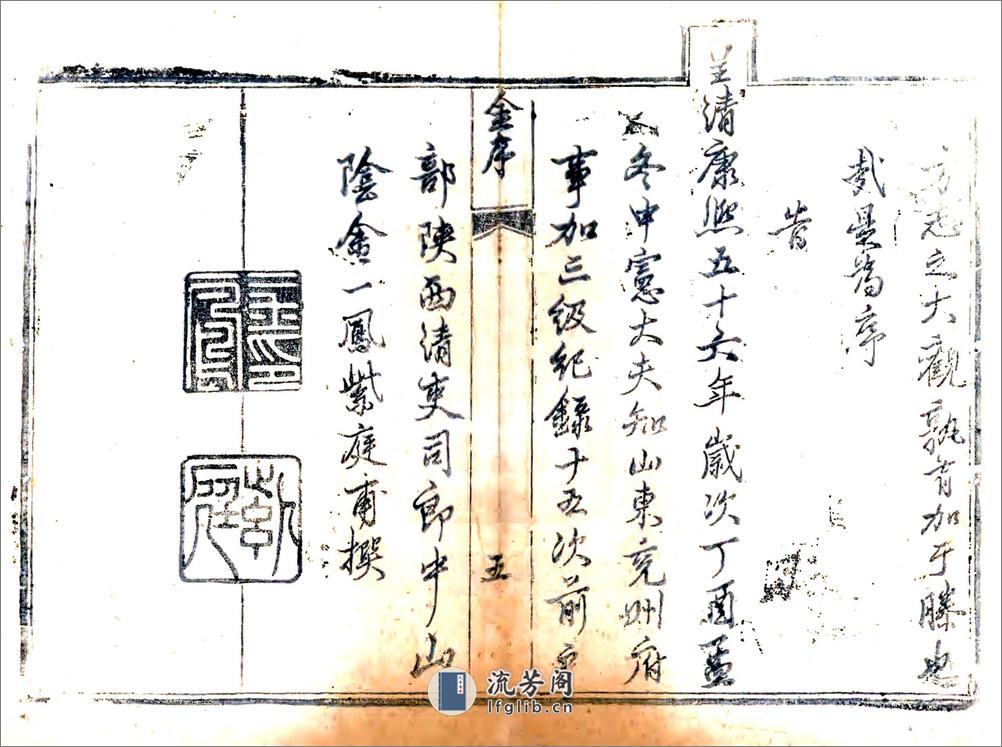 方志之大觀孰有加于滕也
哉是爲序
旹
皇清康熙五十六年歲次丁酉孟
冬中憲大夫知山東兗州府
事加三級紀錄十五次前戶
金序
五
部陝西清吏司郎中山
陰金一鳳紫庭甫撰
流芳阁
lfglib.cn